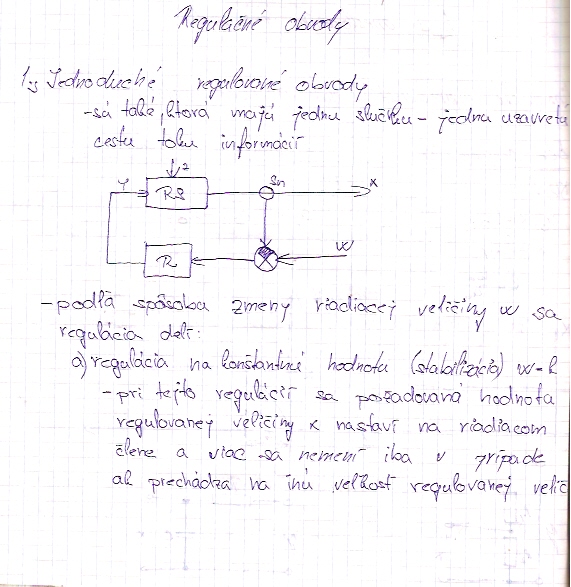 Regulačné obvody
1., Jednoduché regulované obvody
-sú také, ktorá majú jednu slučku - jednu uzavretú
cestu toku informácií
z
Y
RS
Sn
x
R
W
-podľa spôsobu zmeny riadiacej veličiny w sa
regulácia delí:
a) regulácia na konštantnú hodnotu (stabilizácia) w-k
-pri tejto regulácií sa požadovaná hodnota
regulovanej veličiny x nastaví na riadiacom
člene a viac sa nemení iba v prípade
ak prechádza na inú veľkosť regulovanej velič